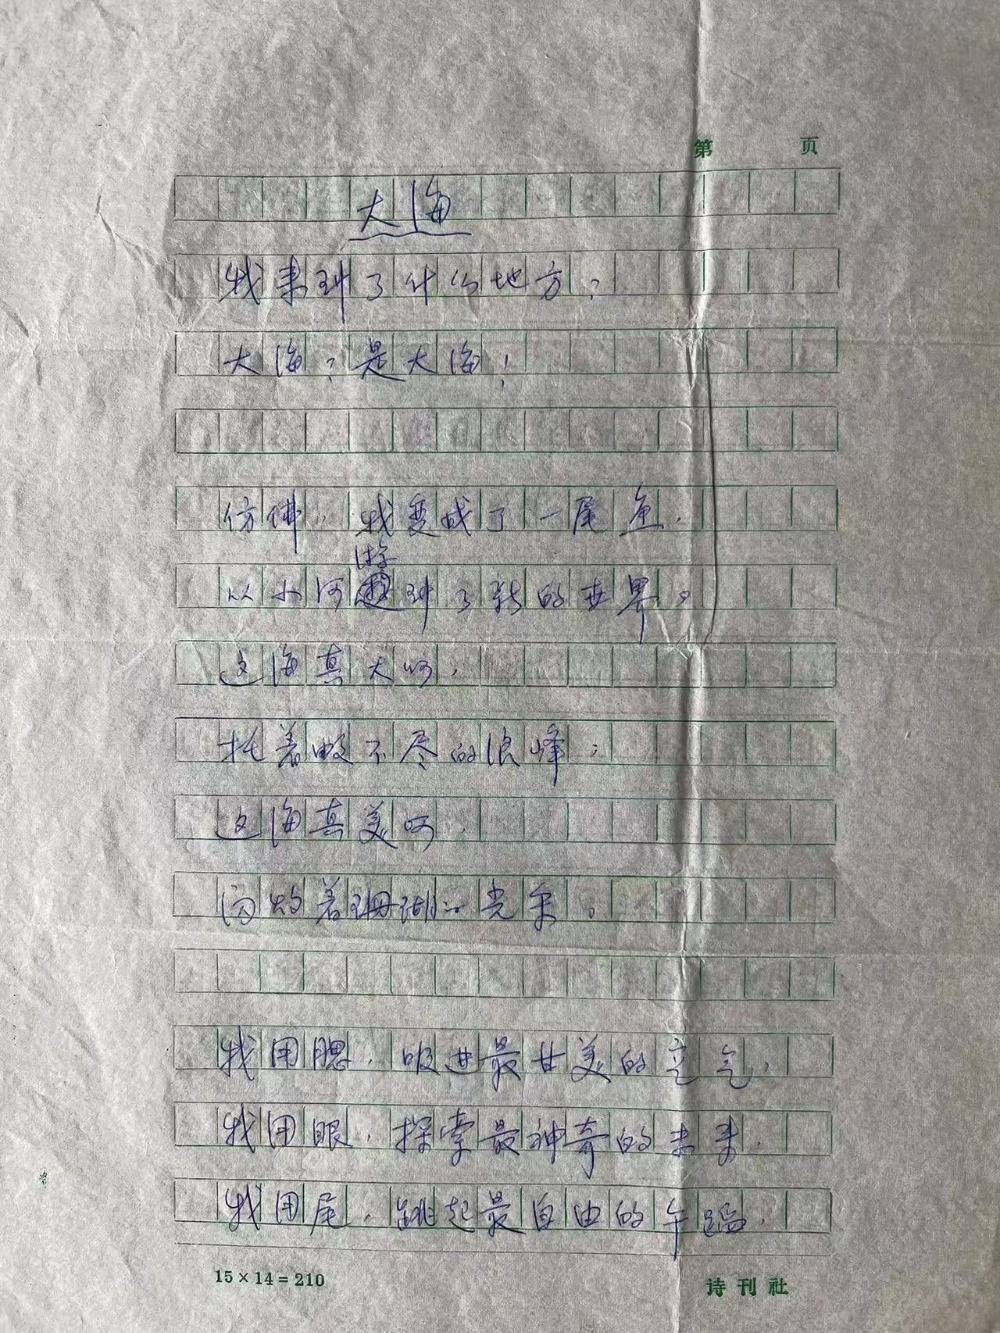 第 页
大海
我来到了什么地方?
大海?是大海!
仿佛,我变成了一尾鱼,
从小河游到了新的世界。
这海真大呵,
托着数不尽的浪峰;
这海真美呵,
闪灼着珊瑚的光采。
我用腮,吸进最甘美的空气,
我用眼,探索最神奇的未来,
我用尾,跳起最自由的午蹈,
15×14=210
诗刊社